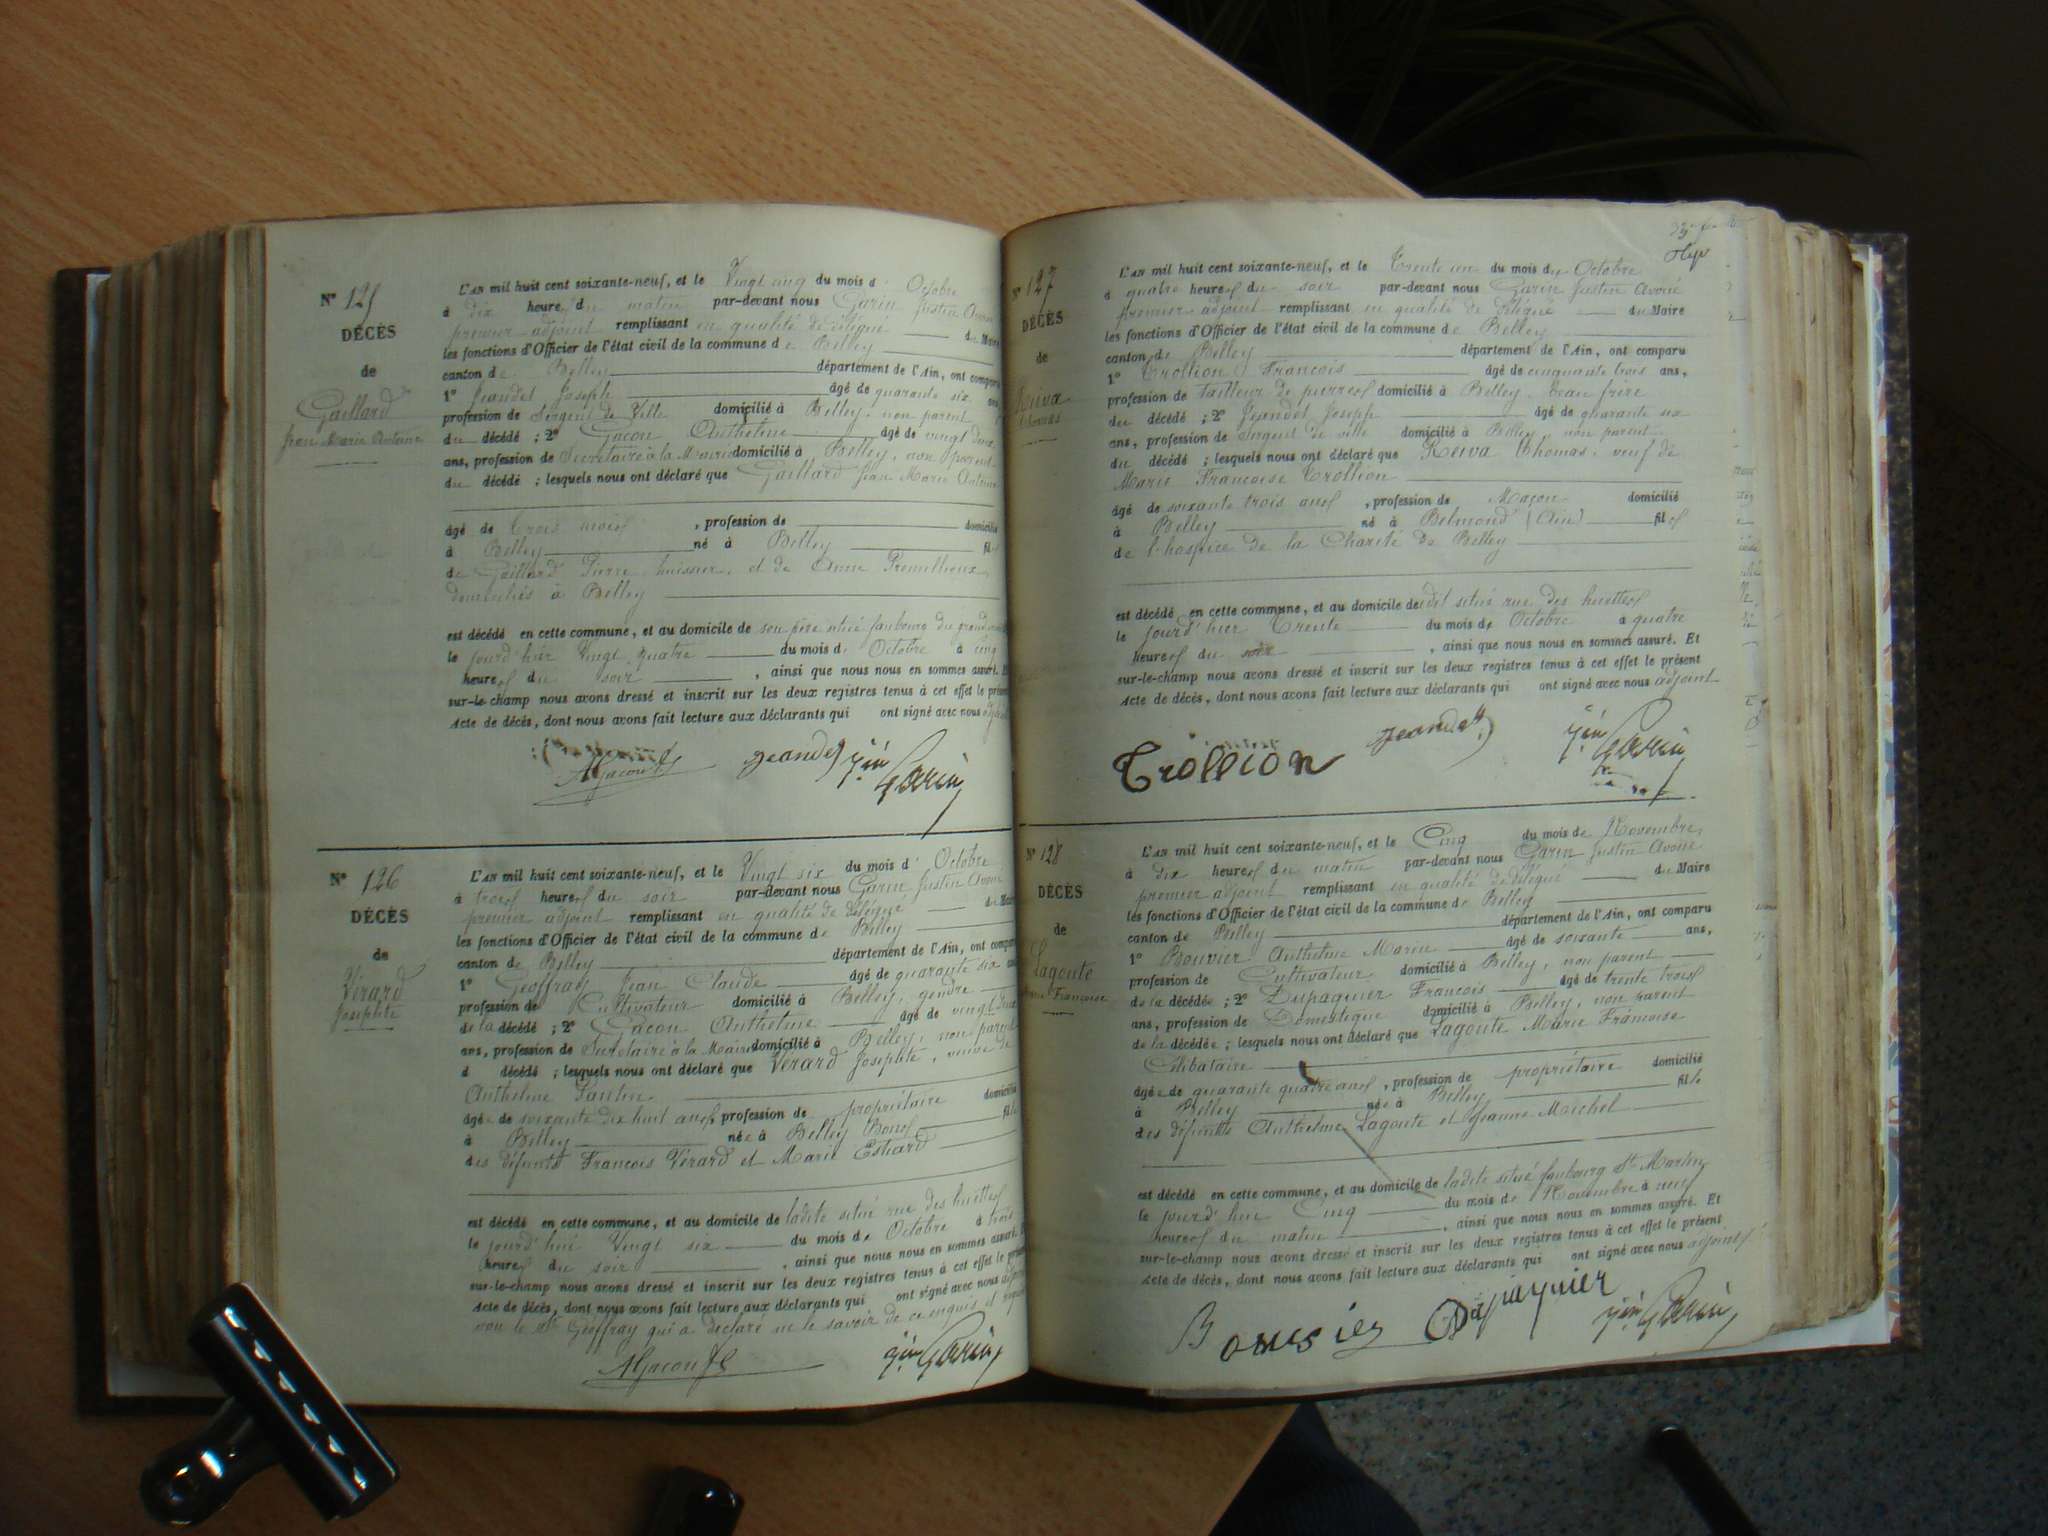 N° 125
DÉCÈS
de
Gaillard
Jean Marie Antoine
L'AN mil huit cent soixante-neuf, et le Vingt cinq du mois d' Octobre
à dix heures du matin par-devant nous Garin Justin Avoué
premier adjoint remplissant en qualité de délégué du Maire
les fonctions d'Officier de l'état civil de la commune de Belley
canton de Belley département de l'Ain, ont comparu
1° Jeandet Joseph âgé de quarante six ans,
profession de Sergent de Ville domicilié à Belley, non parent
du décédé ; 2° Gacon Anthelme âgé de vingt deux
ans, profession de Secrétaire à la Mairie domicilié à Belley, non parent
du décédé ; lesquels nous ont déclaré que Gaillard Jean Marie Antoine
âgé de trois mois, profession de domicilié
à Belley né à Belley fils
de Gaillard Pierre, huissier, et de Anne Premillieux
domiciliés à Belley
est décédé en cette commune, et au domicile de son père situé faubourg du grand
le jourd'hier Vingt quatre du mois d' Octobre à cinq
heures du soir, ainsi que nous nous en sommes assuré. Et
sur-le-champ nous avons dressé et inscrit sur les deux registres tenus à cet effet le présent
Acte de décès, dont nous avons fait lecture aux déclarants qui ont signé avec nous adjoint
AGacon Jeandet Jin Garin
N° 126
DÉCÈS
de
Vérard
Josephte
L'AN mil huit cent soixante-neuf, et le Vingt six du mois d' Octobre
à trois heures du soir par-devant nous Garin Justin Avoué
premier adjoint remplissant en qualité de délégué du Maire
les fonctions d'Officier de l'état civil de la commune de Belley
canton de Belley département de l'Ain, ont comparu
1° Geoffray Jean Claude âgé de quarante six ans
profession de Cultivateur domicilié à Belley, gendre
de la décédé ; 2° Gacon Anthelme âgé de vingt deux
ans, profession de Secrétaire à la Mairie domicilié à Belley, non parent
d décédé ; lesquels nous ont déclaré que Vérard Josephte, veuve de
Anthelme Pantin
âgée de soixante dix huit ans, profession de propriétaire domicilié
à Belley née à Belley Bons fille
des défunts François Vérard et Marie Estiard
est décédé en cette commune, et au domicile de ladite situé rue des huettes
le jourd'hui Vingt six du mois de Octobre à trois
heures du soir, ainsi que nous nous en sommes assuré. Et
sur-le-champ nous avons dressé et inscrit sur les deux registres tenus à cet effet le présent
Acte de décès, dont nous avons fait lecture aux déclarants qui ont signé avec nous adjoint
non le Sr Geoffray qui a déclaré ne le savoir de ce enquis et requis
AGacon Jin Garin
N° 127
DÉCÈS
de
Reiva
Thomas
L'AN mil huit cent soixante-neuf, et le Trente un du mois de Octobre
à quatre heures du soir par-devant nous Garin Justin Avoué
premier adjoint remplissant en qualité de délégué du Maire
les fonctions d'Officier de l'état civil de la commune de Belley
canton de Belley département de l'Ain, ont comparu
1° Trollion François âgé de cinquante trois ans,
profession de Tailleur de pierres domicilié à Belley, beau frère
du décédé ; 2° Jeandet Joseph âgé de quarante six
ans, profession de Sergent de ville domicilié à Belley, non parent
du décédé ; lesquels nous ont déclaré que Reiva Thomas, veuf de
Marie Françoise Trollion
âgé de soixante trois ans, profession de Maçon domicilié
à Belley né à Belmond (Ain) fils
de l'hospice de la Charité de Belley
est décédé en cette commune, et au domicile dudit situé rue des huettes
le jourd'hier Trente du mois de Octobre à quatre
heures du soir, ainsi que nous nous en sommes assuré. Et
sur-le-champ nous avons dressé et inscrit sur les deux registres tenus à cet effet le présent
Acte de décès, dont nous avons fait lecture aux déclarants qui ont signé avec nous adjoint
Trollion Jeandet Jin Garin
N° 128
DÉCÈS
de
Lagoute
Marie Françoise
L'AN mil huit cent soixante-neuf, et le Cinq du mois de Novembre
à dix heures du matin par-devant nous Garin Justin Avoué
premier adjoint remplissant en qualité de délégué du Maire
les fonctions d'Officier de l'état civil de la commune de Belley
canton de Belley département de l'Ain, ont comparu
1° Bouvier Anthelme Marin âgé de soixante ans,
profession de Cultivateur domicilié à Belley, non parent
de la décédée ; 2° Dupaquier François âgé de trente trois
ans, profession de Domestique domicilié à Belley, non parent
de la décédée ; lesquels nous ont déclaré que Lagoute Marie Françoise
Célibataire
âgée de quarante quatre ans, profession de propriétaire domicilié
à Belley née à Belley fille
des défunts Anthelme Lagoute et Jeanne Michel
est décédé en cette commune, et au domicile de ladite situé faubourg St Martin
le jourd'hui Cinq du mois de Novembre à
heures du matin, ainsi que nous nous en sommes assuré. Et
sur-le-champ nous avons dressé et inscrit sur les deux registres tenus à cet effet le présent
Acte de décès, dont nous avons fait lecture aux déclarants qui ont signé avec nous adjoint
Bouvier Dupaquier Jin Garin